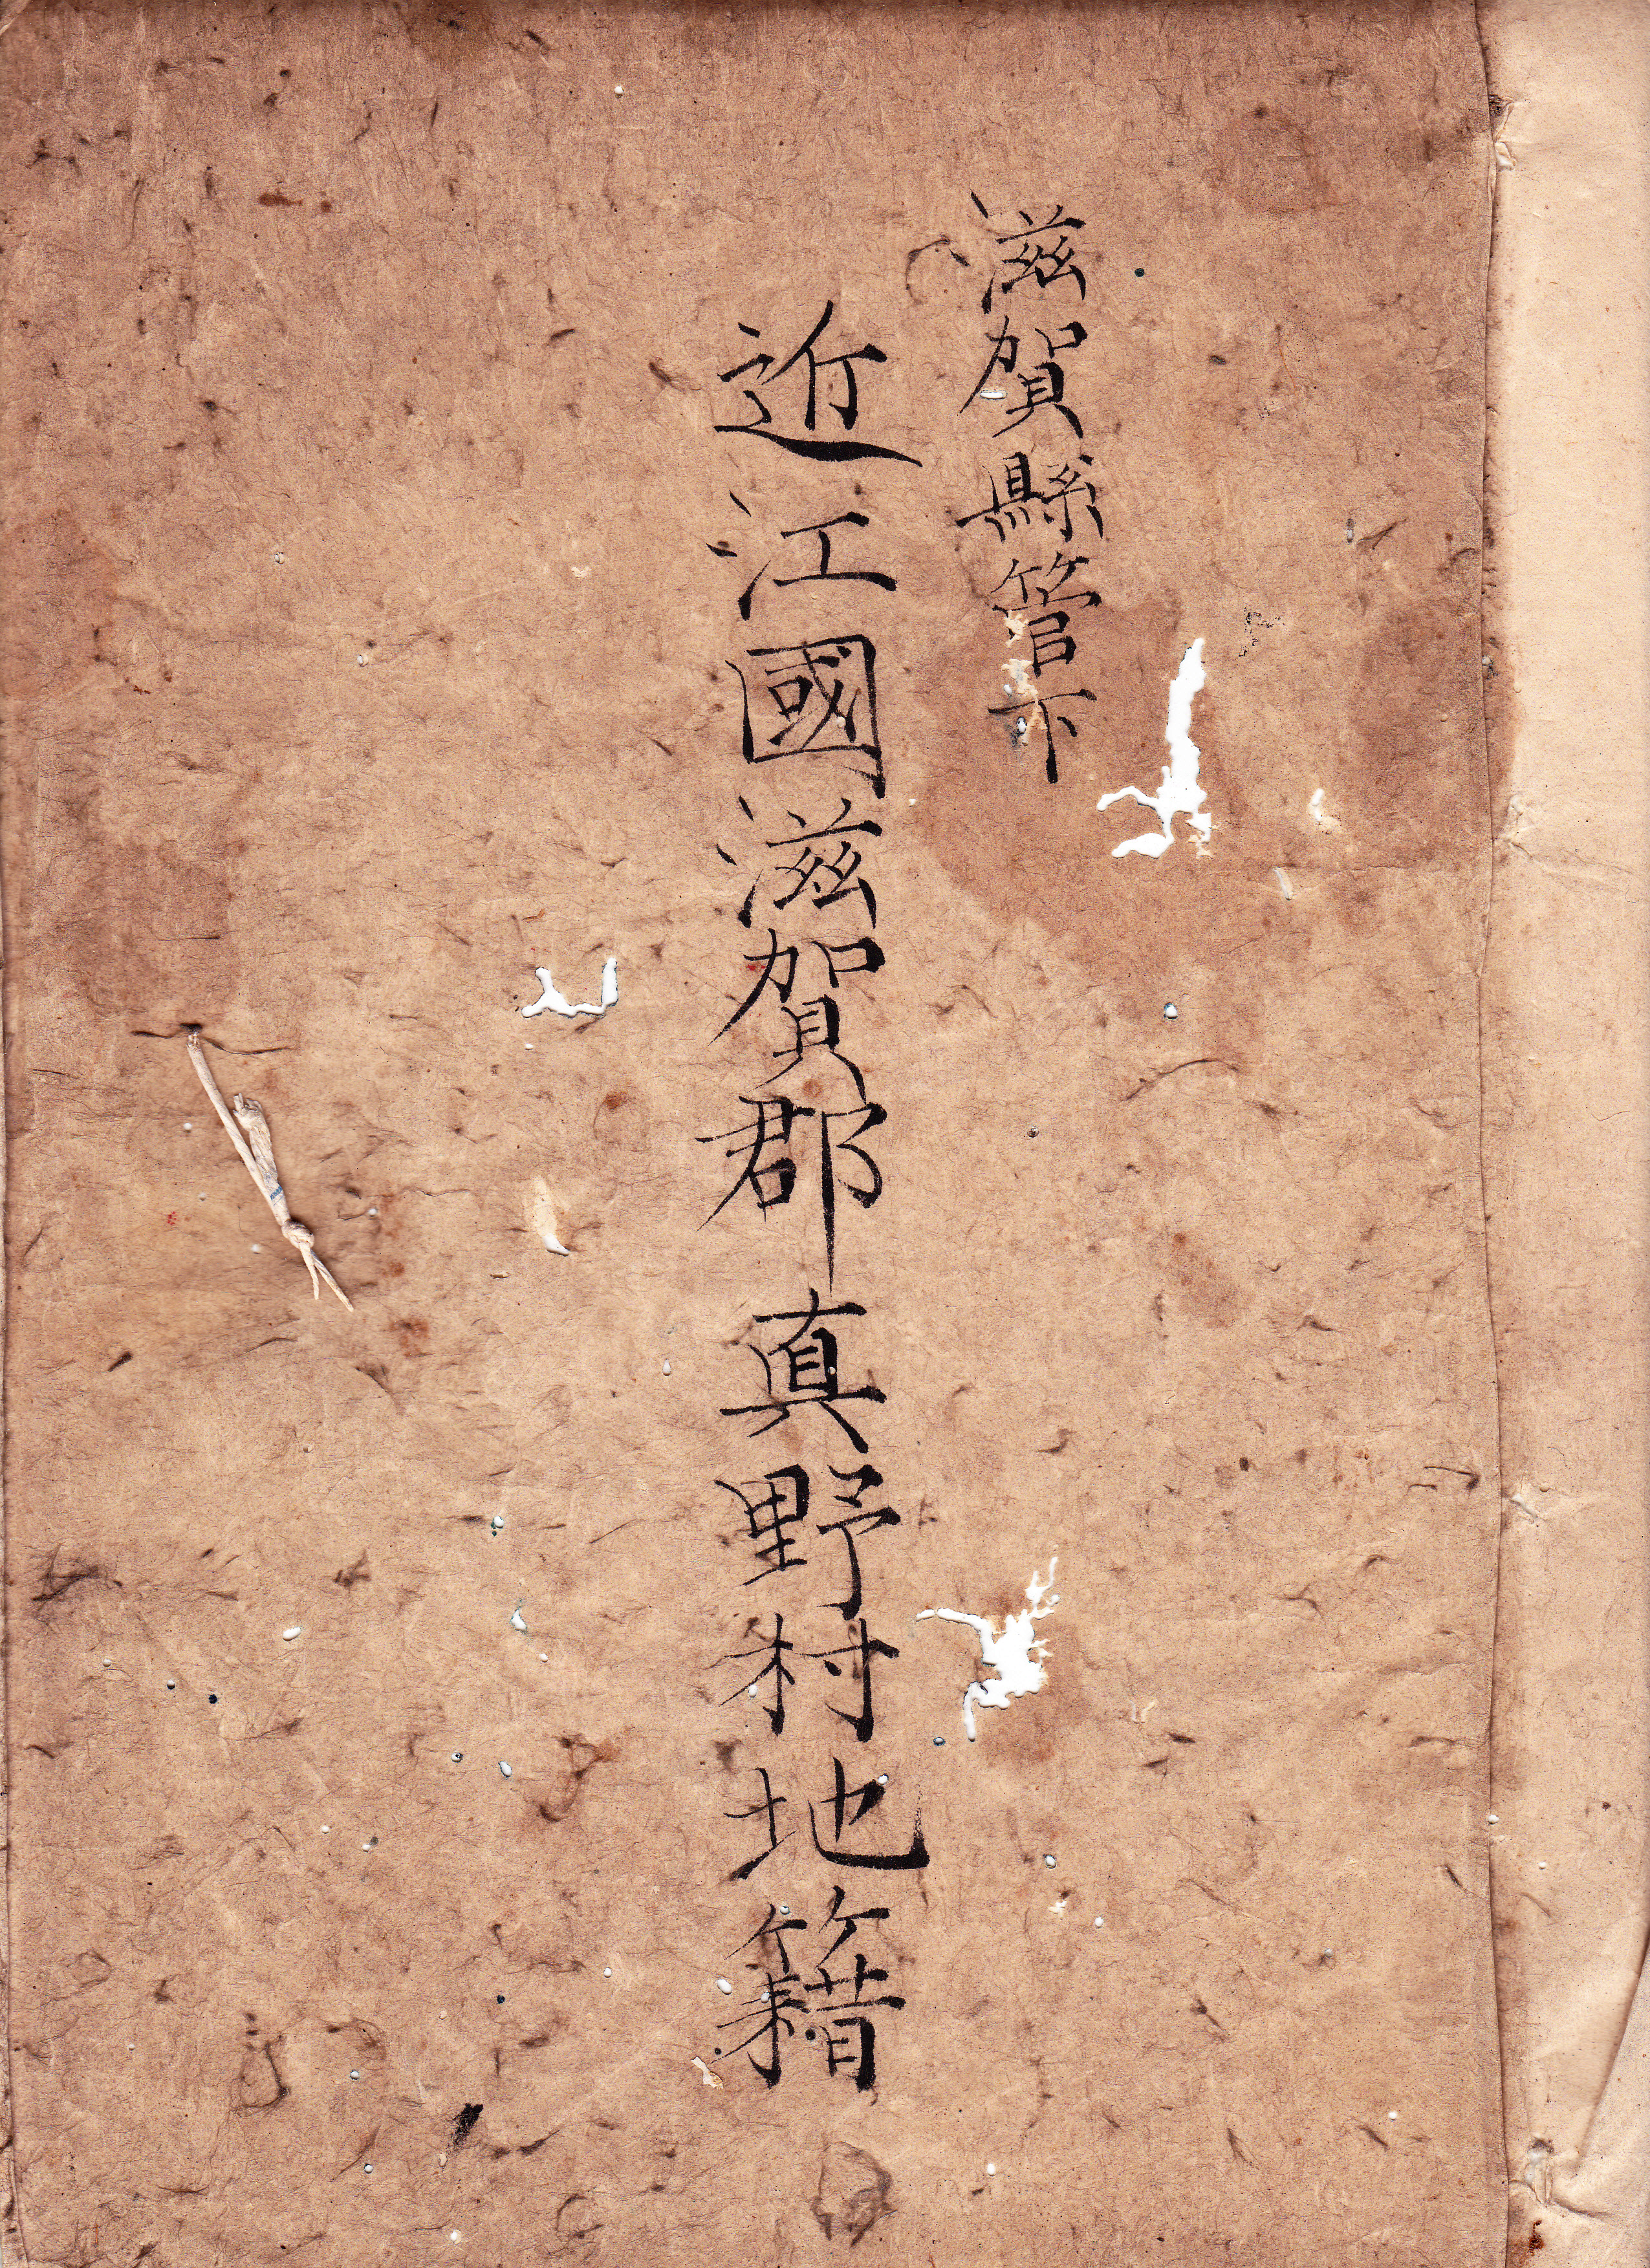 滋賀縣管下
近江國滋賀郡真野村地籍